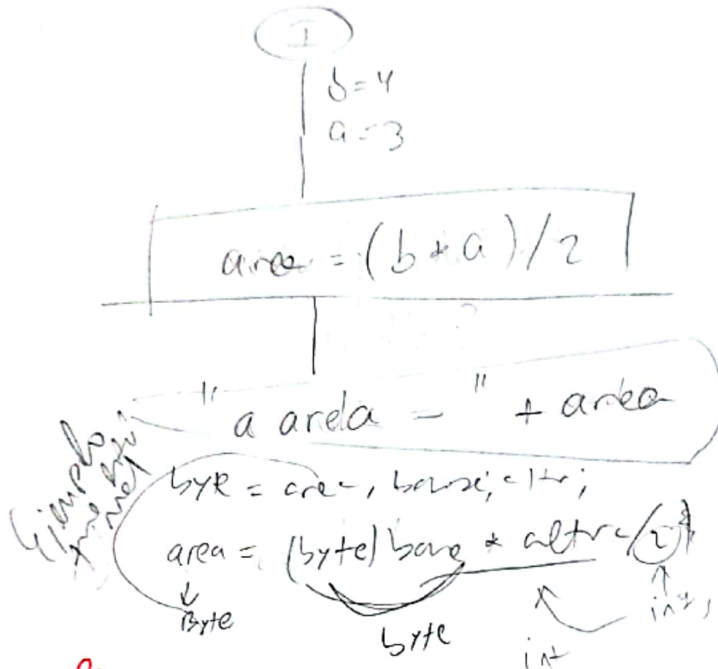 I
b=4
a=3
area = (b * a)/2
"a area = " + area
byte = area, base, altr;
area = (byte) base * altra/2
Byte
byte
int
int,
Ejemplo